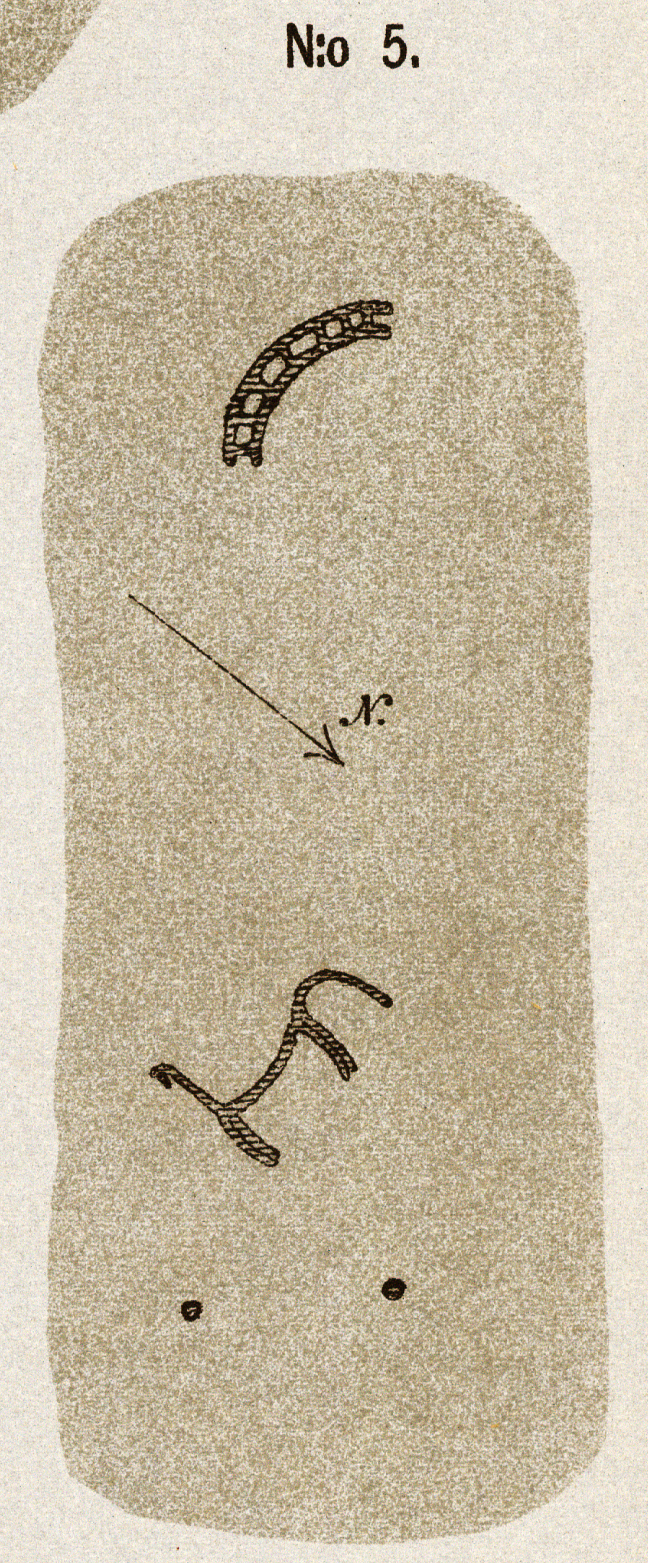 N:o 5.
N.